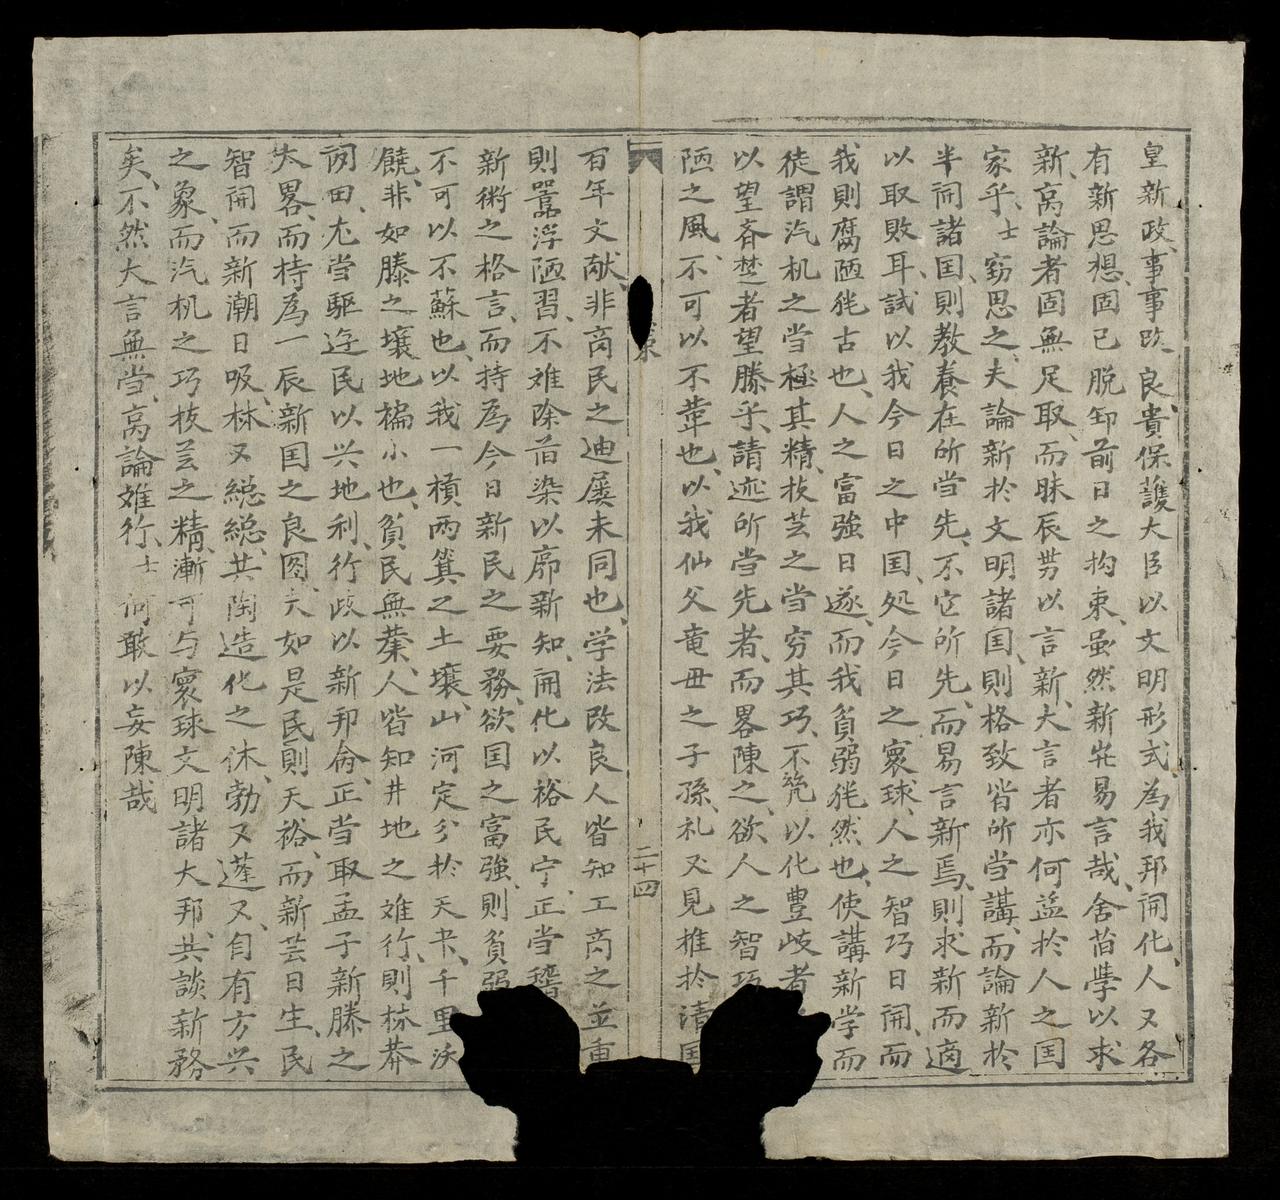 皇新政事事改良貴保護大臣以文明形式為我邦開化人又各
有新思想固已脱卸前日之拘束虽然新𡉏易言哉舍旧學以求
新高論者固無足取而昧辰势以言新大言者亦何益於人之国
家乎士窃思之夫論新於文明諸国則格致皆所当講而論新於
半開諸国則教养在所当先不它所先而易言新焉則求新而適
以取敗耳試以我今日之中国処今日之寰球人之智巧日開而
我則腐陋犹古也人之富強日遂而我貧弱犹然也使講新学而
徒謂汽机之当極其精技芸之当穷其巧不
以化豊岐者
以望斉楚者望滕乎請述所当先者而畧陳之欲人之智巧
陋之風不可以不革也以我仙父竜毋之子孫礼又見推於清国
二十四
百年文献非啇民之迪屡未同也学法改良人皆知工啇之並重
則嚣浮陋習不难除旧染以廓新知開化以裕民宁正当稽
新術之格言而持為今日新民之要務欲国之富強則貧弱
不可以不蘇也以我一横两箕之土壤山河定分於天朱千里沃
饒非如滕之壤地褊小也貧民無業人皆知井地之难行則林莽
閑田尤当驅逰民以兴地利行政以新邦侖正当取孟子新滕之
大畧而持為一辰新国之良图夫如是民則天裕而新芸日生民
智開而新潮日吸林又総総共陶造化之休勃又蓬又自有方兴
之象而汽机之巧技芸之精漸可与寰球文明諸大邦共談新務
矣不然大言無当高論难行士何敢以妄陳哉